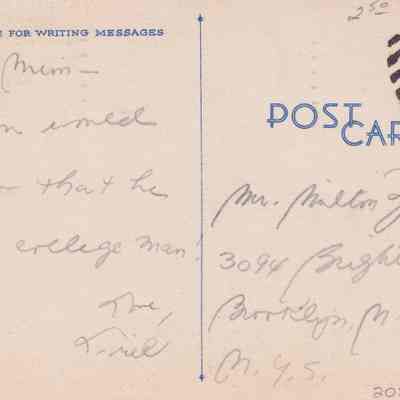 FOR WRITING MESSAGES
Mim —
would
that he
college man!
Love,
2 50
POST
CAR
Mr. Milton
3094 Bright
Brooklyn, N.
N.Y.S.